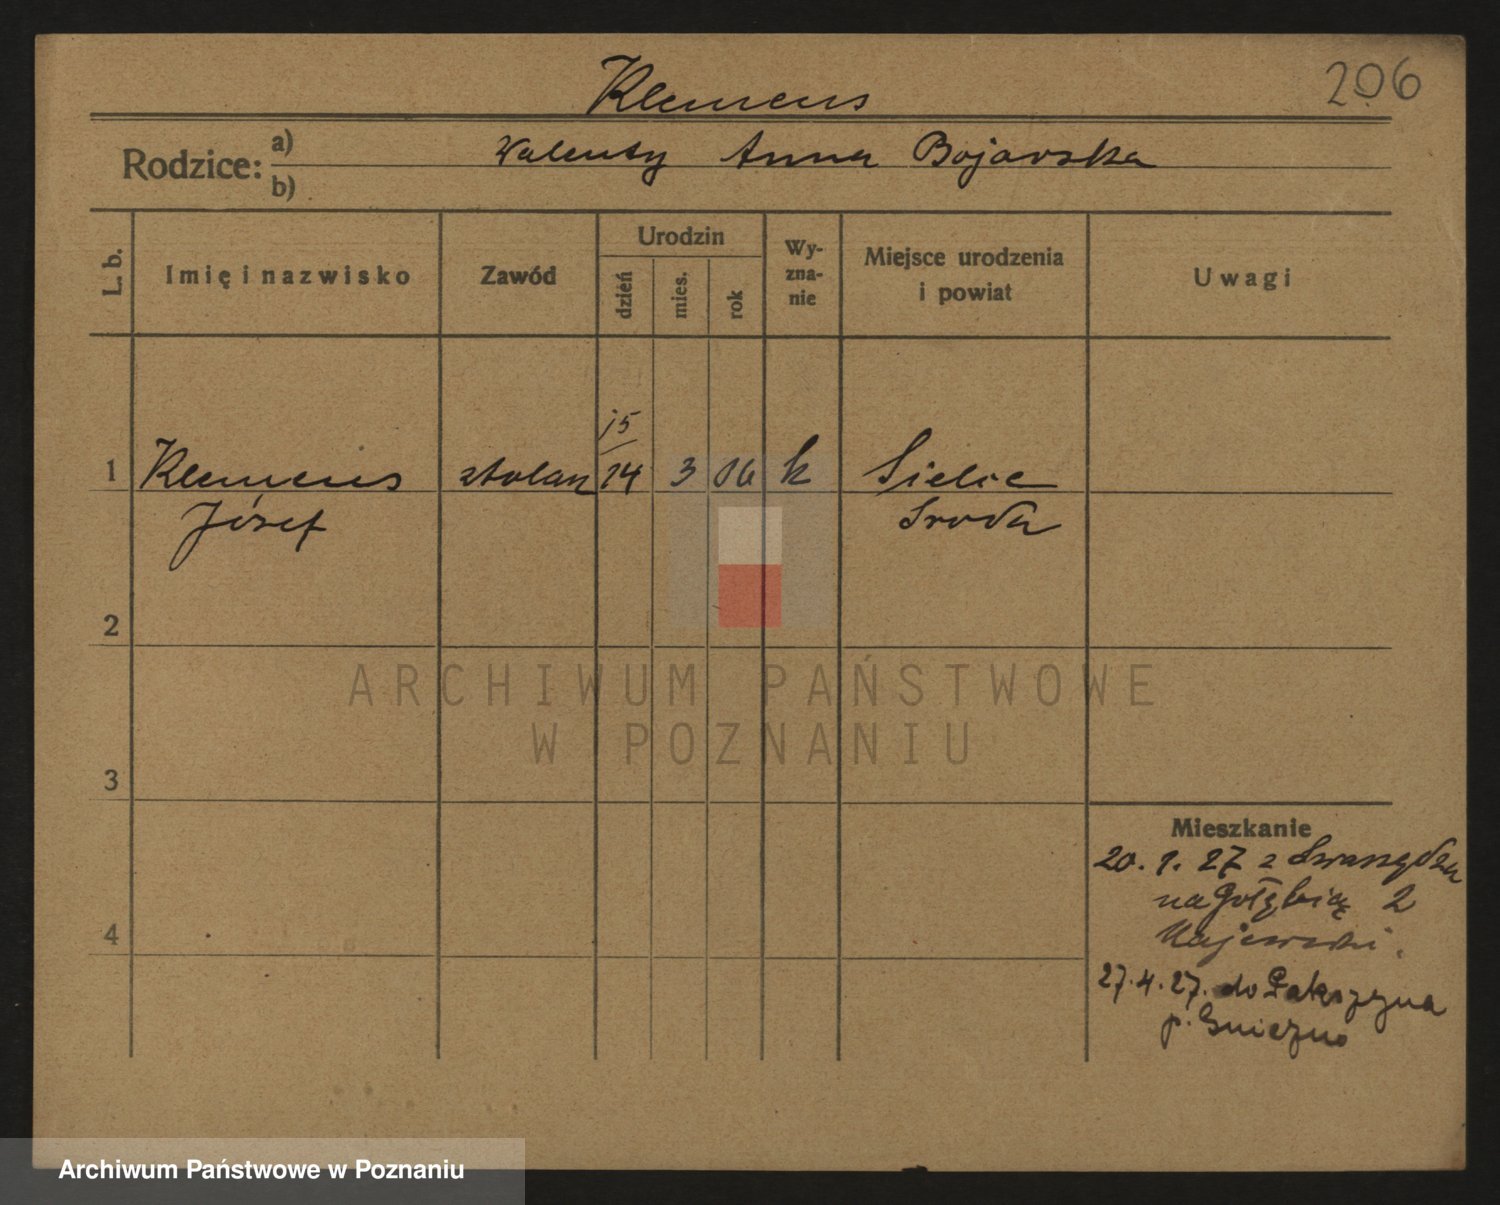 206
Klemens
Rodzice: a) Walenty Anna Bojarska
b)
L. b.
Imię i nazwisko
Zawód
Urodzin
dzień
mies.
rok
Wy-
zna-
nie
Miejsce urodzenia
i powiat
Uwagi
15
1 Klemens stolarz 14 3 06 k Sielec
Józef Środa
2
3
4
Mieszkanie
20. 1. 27 z Swarzędza
na Gołębią 2
Majewski.
27.4.27. do
p. Gniezno
ARCHIWUM PAŃSTWOWE
W POZNANIU
Archiwum Państwowe w Poznaniu